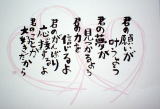 君の願いが
叶いますように
君の夢が
見つかるよう
君の力を
信じるよ
君のがんばり
応援するよ
君のことが
大好きだから